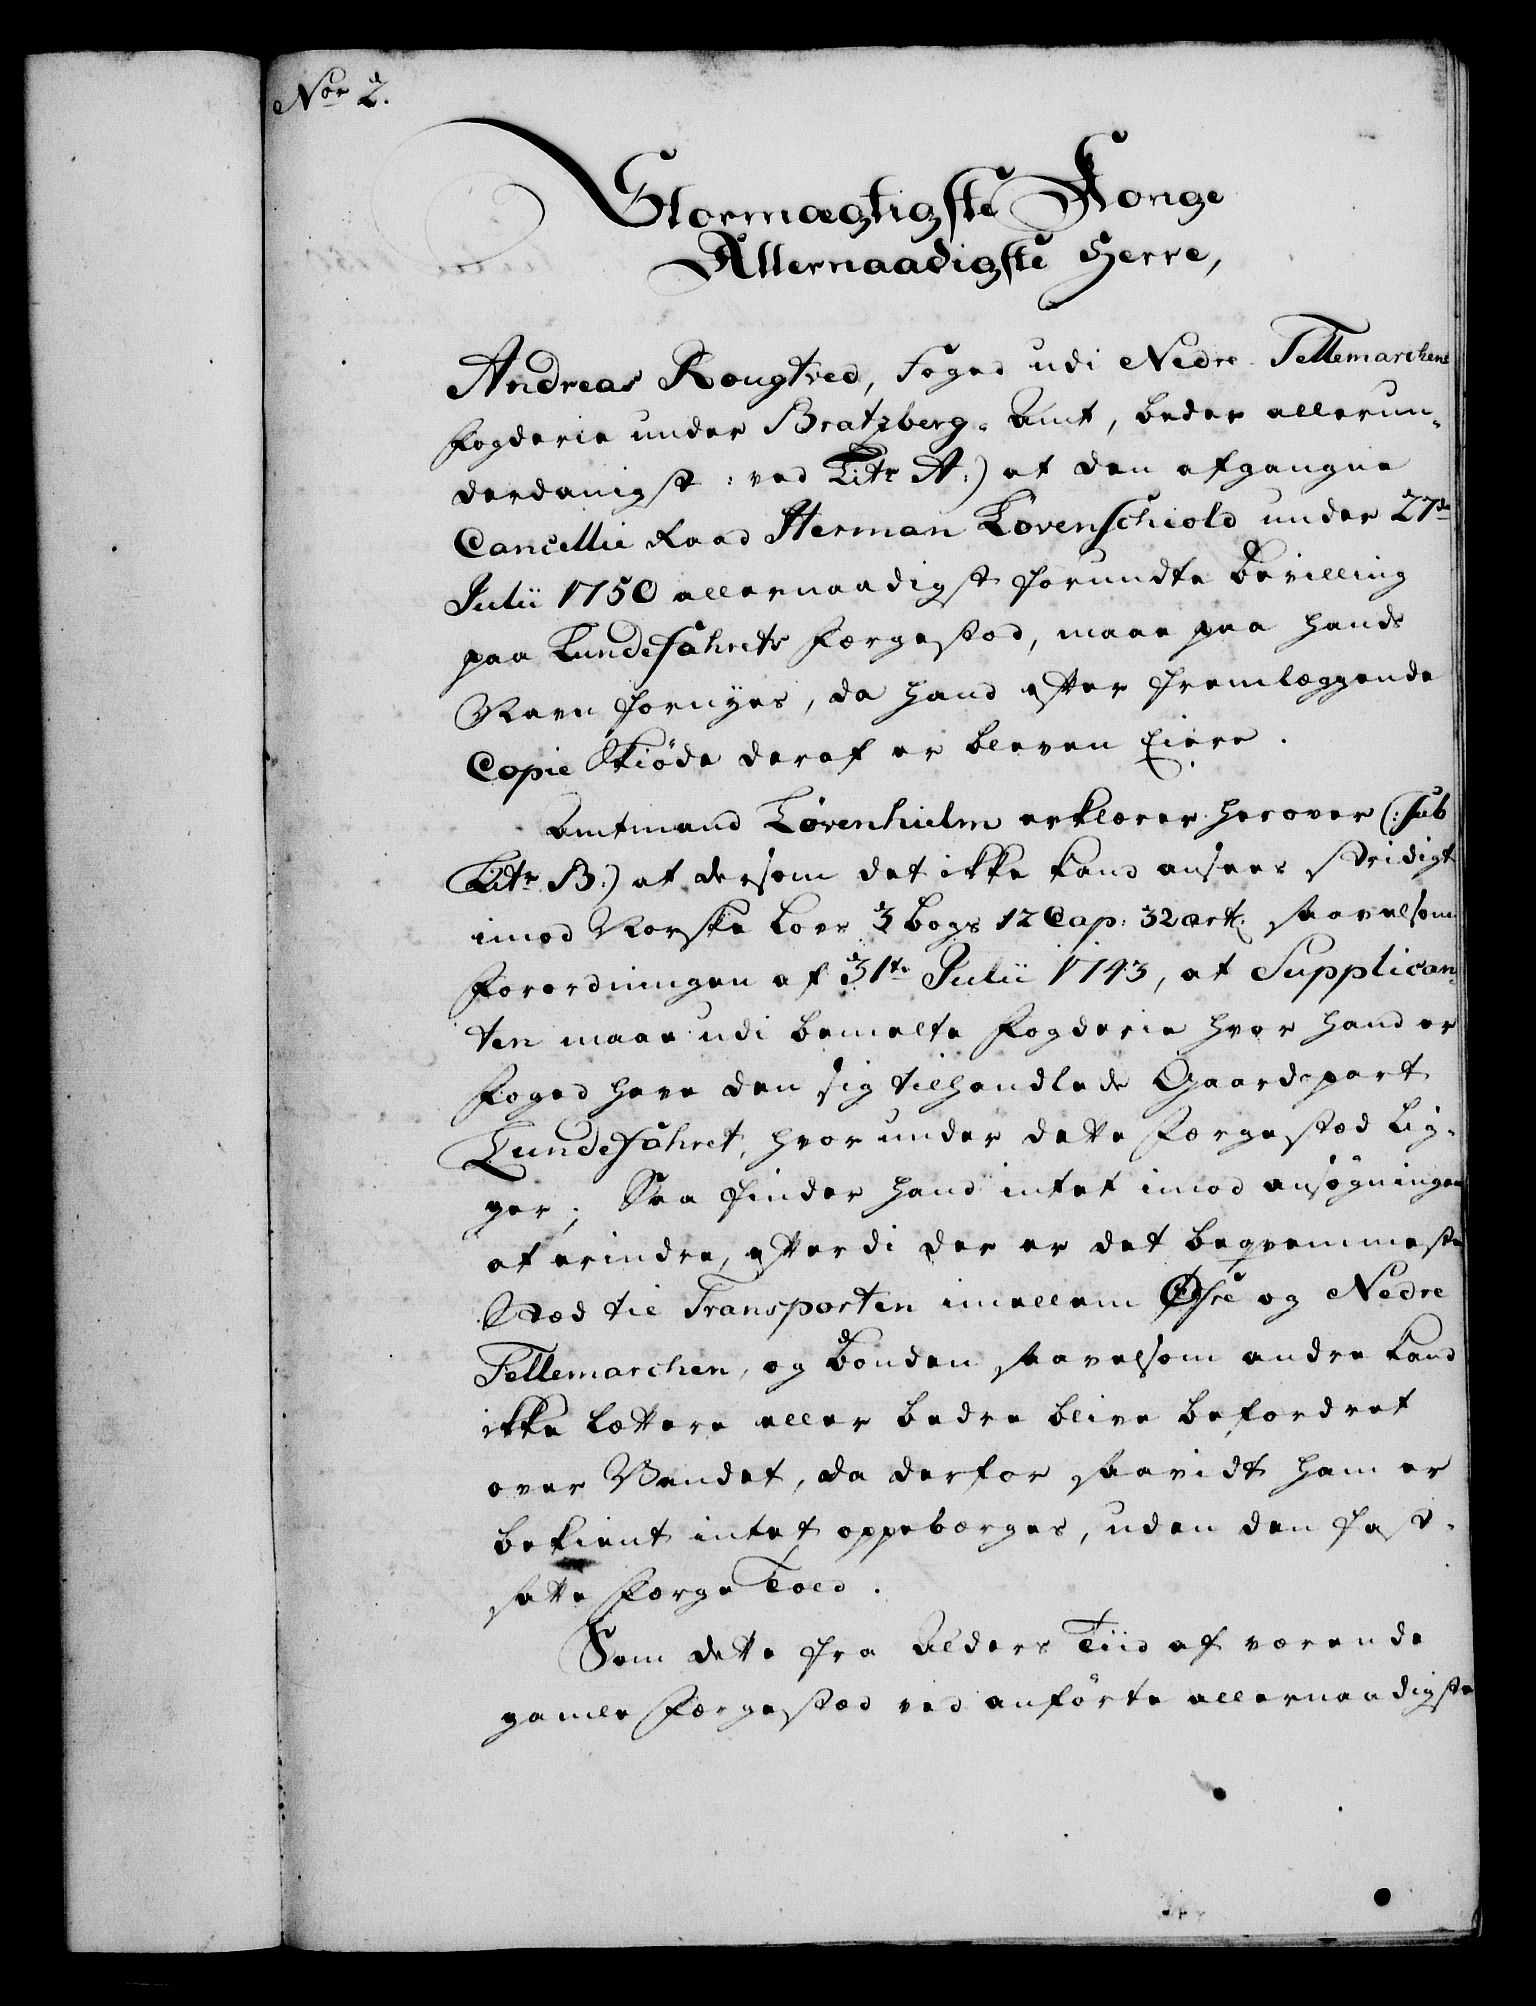 Nor 2.
Stormægtigste Konge
Allernaadigste Herre,
Andreas Rougtved, Foged udi Nedre-Tellemarchens
Fogderie under Bratzberg-Amt, beder allerun-
derdanigst: ved Litr A:) at den afgangne
Cancellie Raad Herman Løvenschiold under 27de
Julii 1750 allernaadigst forundte Bevilling
paa Lundefahrets Færgestæd, maae paa hands
Navn fornyes, da hand efter fremlæggende
Copie Skiöde deraf er bleven Eiere.
Amtmand Løvenhielm erklærer herover (: sub
Litr B:) at dersom det ikke kand ansees stridigt
imod Norske Lovs 3 Bogs 12 Cap: 32 art: saavelsom
Forordningen af 31te Julii 1743, at Supplican-
ten maae udi bemelte Fogderie hvor hand er
Foged have den sig tilhandlede Gaardepart
Lundefahret, hvorunder dette Færgestæd lig-
ger; Saa finder hand intet imod ansøgningen
at erindre, efterdi der er det beqvemmeste
Stæd til Transporten imellem Øfre og Nedre
Tellemarchen, og Bonden saavelsom andre kand
ikke lættere eller bedre blive befordret
over Vandet, da derfor saavidt ham er
bekient intet oppebærges, uden den fast-
satte Færge Told.
Som dette fra Alders Tiid af værende
gamle Færgestæd ved anførte allernaadigste